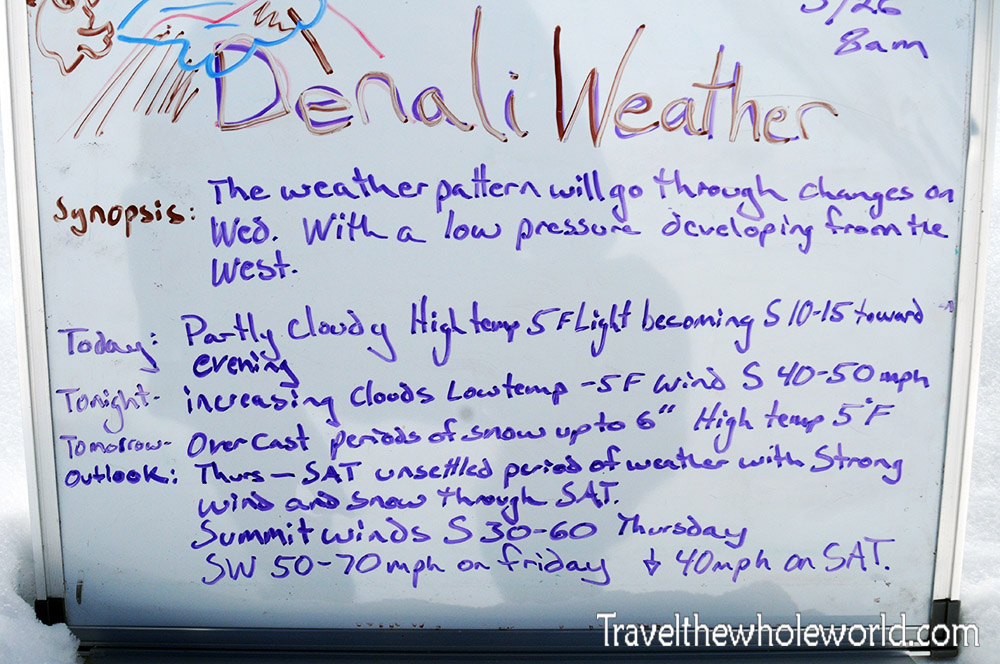 5/26
8am
Denali Weather
Synopsis: The weather pattern will go through changes on
Wed. With a low pressure developing from the
West.
Today: Partly Cloudy High temp 5F Light becoming S 10-15 toward
evening
Tonight- increasing clouds Low temp -5F Wind S 40-50 mph
Tomorrow- Overcast periods of snow up to 6" High temp 5°F
Outlook: Thurs - SAT unsettled period of weather with Strong
wind and snow through SAT.
Summit winds S 30-60 Thursday
SW 50-70mph on friday ↓ 40mph on SAT.
Travelthewholeworld.com